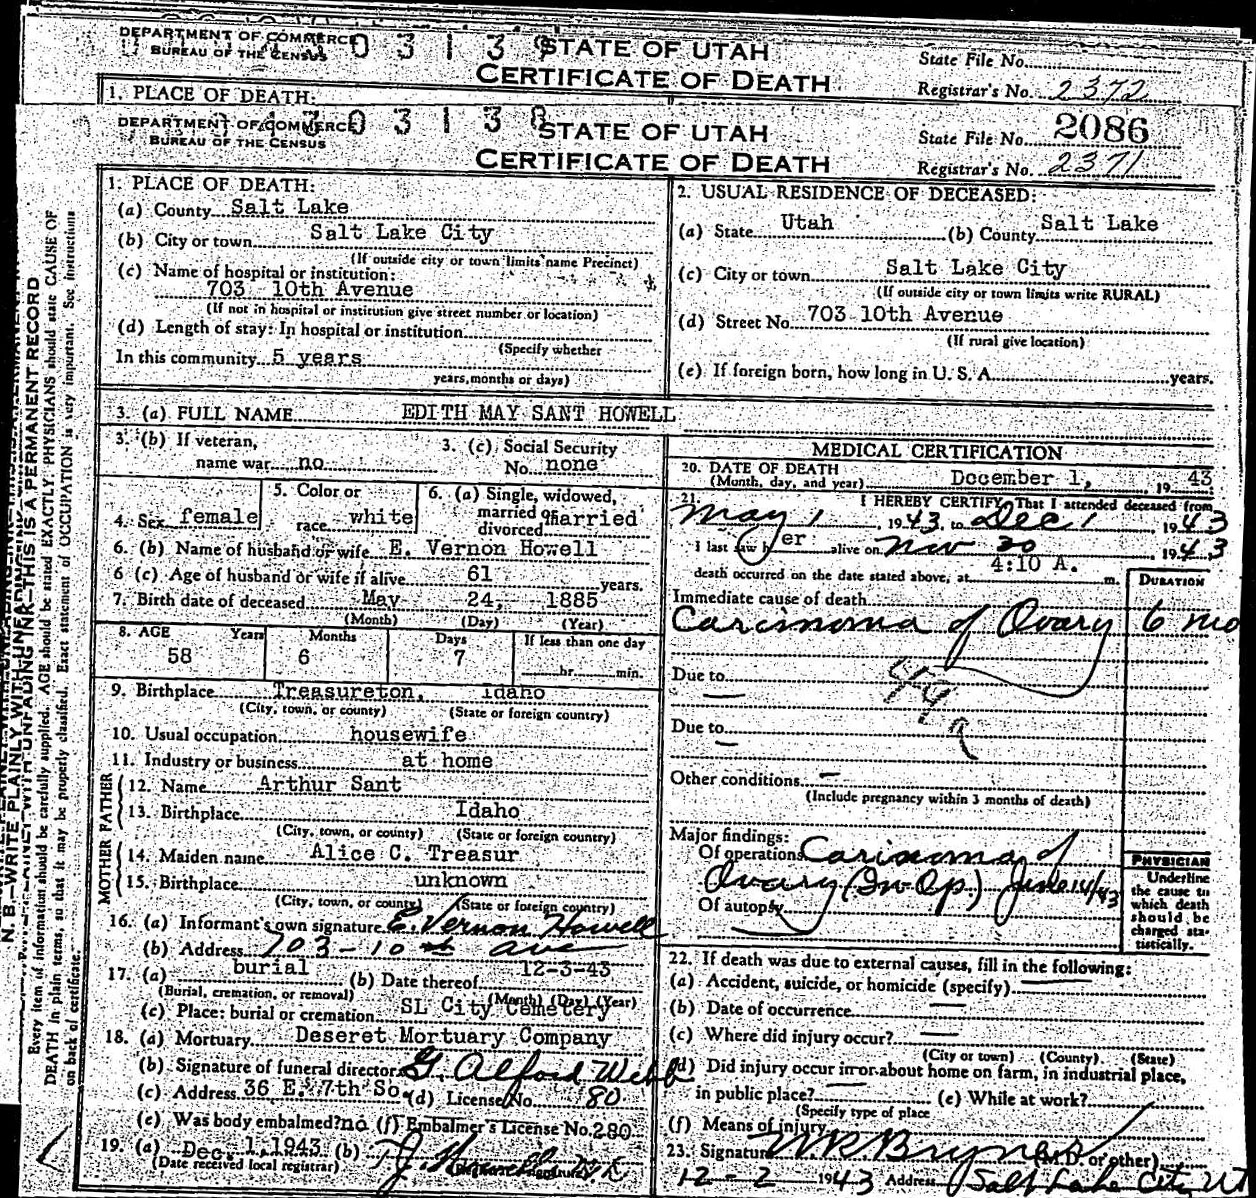 DEPARTMENT OF COMMERCE
BUREAU OF THE CENSUS
0 3 1 3
STATE OF UTAH
CERTIFICATE OF DEATH
State File No.
Registrar's No. 2372
1. PLACE OF DEATH:
DEPARTMENT OF COMMERCE
BUREAU OF THE CENSUS
0 3 1 3 8
STATE OF UTAH
CERTIFICATE OF DEATH
State File No. 2086
Registrar's No. 2371
1. PLACE OF DEATH:
(a) County Salt Lake
(b) City or town Salt Lake City
(If outside city or town limits name Precinct)
(c) Name of hospital or institution:
703 10th Avenue
(If not in hospital or institution give street number or location)
(d) Length of stay: In hospital or institution
(Specify whether
In this community 5 years
years, months or days)
2. USUAL RESIDENCE OF DECEASED:
(a) State Utah (b) County Salt Lake
(c) City or town Salt Lake City
(If outside city or town limits write RURAL)
(d) Street No. 703 10th Avenue
(If rural give location)
(e) If foreign born, how long in U. S. A. years.
3. (a) FULL NAME EDITH MAY SANT HOWELL
3. (b) If veteran,
name war no
3. (c) Social Security
No. none
4. Sex female
5. Color or
race white
6. (a) Single, widowed,
married or
divorced married
6. (b) Name of husband or wife E. Vernon Howell
6 (c) Age of husband or wife if alive 61 years.
7. Birth date of deceased May 24, 1885
(Month) (Day) (Year)
8. AGE Years Months Days If less than one day
58 6 7 hr. min.
9. Birthplace Treasureton, Idaho
(City, town, or county) (State or foreign country)
10. Usual occupation housewife
11. Industry or business at home
FATHER
12. Name Arthur Sant
13. Birthplace Idaho
(City, town, or county) (State or foreign country)
MOTHER
14. Maiden name Alice C. Treasur
15. Birthplace unknown
(City, town, or county) (State or foreign country)
16. (a) Informant's own signature E. Vernon Howell
(b) Address 703-10th ave
17. (a) burial (b) Date thereof 12-3-43
(Burial, cremation, or removal) (Month) (Day) (Year)
(c) Place: burial or cremation SL City Cemetery
18. (a) Mortuary Deseret Mortuary Company
(b) Signature of funeral director G. Alford Webb
(c) Address 36 E. 7th So. (d) License No. 80
(e) Was body embalmed? no (f) Embalmer's License No. 280
19. (a) Dec. 1, 1943 (b)
(Date received local registrar)
MEDICAL CERTIFICATION
20. DATE OF DEATH
(Month, day, and year) December 1, 19 43
21. I HEREBY CERTIFY, That I attended deceased from
May 1, 1943, to Dec 1 1943
I last saw her alive on Nov 30 1943
death occurred on the date stated above, at 4:10 A. m.
DURATION
Immediate cause of death
Carcinoma of Ovary 6 mo
Due to
49a
Due to
Other conditions
(Include pregnancy within 3 months of death)
Major findings:
Of operations Carinoma of
Ovary (In Op) June 14/43
Of autopsy
PHYSICIAN
Underline
the cause to
which death
should be
charged sta-
tistically.
22. If death was due to external causes, fill in the following:
(a) Accident, suicide, or homicide (specify)
(b) Date of occurrence
(c) Where did injury occur?
(City or town) (County) (State)
(d) Did injury occur in or about home on farm, in industrial place,
in public place? (e) While at work?
(Specify type of place
(f) Means of injury
23. Signature (M.D. or other)
12-2 1943 Address Salt Lake City Ut
N. B.—WRITE PLAINLY WITH UNFADING INK—THIS IS A PERMANENT RECORD
Every item of information should be carefully supplied. AGE should be stated EXACTLY. PHYSICIANS should state CAUSE OF
DEATH in plain terms, so that it may be properly classified. Exact statement of OCCUPATION is very important. See instructions
on back of certificate.